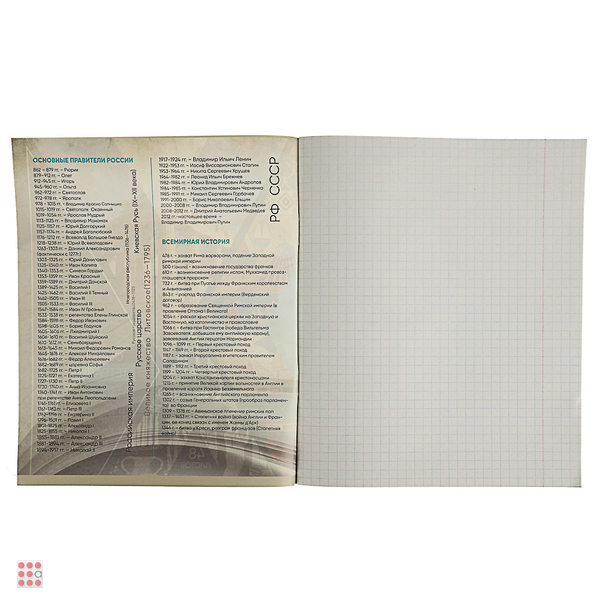 ОСНОВНЫЕ ПРАВИТЕЛИ РОССИИ
862 – 879 гг. – Рюрик
879–912 гг. – Олег
912–945 гг. – Игорь
945–960 гг. – Ольга
962–972 гг. – Святослав
972–978 гг. – Ярополк
978 – 1015 гг. – Владимир Красно Солнышко
1015–1019 гг. – Святополк Окаянный
1019–1054 гг. – Ярослав Мудрый
1113–1125 гг. – Владимир Мономах
1125–1157 гг. – Юрий Долгорукий
1157–1174 гг. – Андрей Боголюбский
1176–1212 гг. – Всеволод Большое Гнездо
1218–1238 гг. – Юрий Всеволодович
1263–1303 гг. – Даниил Александрович
(фактически с 1277г.)
1303–1325 гг. – Юрий Данилович
1325–1340 гг. – Иван Калита
1340–1353 гг. – Симеон Гордый
1353–1359 гг. – Иван Красный
1359–1389 гг. – Дмитрий Донской
1389–1425 гг. – Василий I
1425–1462 гг. – Василий II Темный
1462–1505 гг. – Иван III
1505–1533 гг. – Василий III
1547–1584 гг. – Иван IV Грозный
1584–1598 гг. – Федор Иванович
1598–1605 гг. – Борис Годунов
1605–1606 гг. – Лжедмитрий I
1606–1610 гг. – Василий Шуйский
1610–1612 гг. – Семибоярщина
1613–1645 гг. – Михаил Федорович Романов
1645–1676 гг. – Алексей Михайлович
1676–1682 гг. – Федор Алексеевич
1682–1689 гг. – царевна Софья
1682–1725 гг. – Петр I
1725–1727 гг. – Екатерина I
1727–1730 гг. – Петр II
1730–1740 гг. – Анна Иоанновна
1740–1741 гг. – Иван Антонович
при регентстве Анны Леопольдовны
1741–1761 гг. – Елизавета I
1761–1762 гг. – Петр III
1762–1796 гг. – Екатерина II
1796–1801 гг. – Павел I
1801–1825 гг. – Александр I
1825–1855 гг. – Николай I
1855–1881 гг. – Александр II
1881–1894 гг. – Александр III
1894–1917 гг. – Николай II
Киевская Русь (IX–XII века)
Великое княжество Литовское(1236–1795)
Русское царство
Российская империя
1917–1924 гг. – Владимир Ильич Ленин
1922–1953 гг. – Иосиф Виссарионович Сталин
1953–1964 гг. – Никита Сергеевич Хрущев
1964–1982 гг. – Леонид Ильич Брежнев
1982–1984 гг. – Юрий Владимирович Андропов
1984–1985 гг. – Константин Устинович Черненко
1985–1991 гг. – Михаил Сергеевич Горбачев
1991–2000 гг. – Борис Николаевич Ельцин
2000–2008 гг. – Владимир Владимирович Путин
2008–2012 гг. – Дмитрий Анатольевич Медведев
2012 гг.–настоящее время –
Владимир Владимирович Путин
РФ СССР
ВСЕМИРНАЯ ИСТОРИЯ
476 г. – захват Рима варварами, падение Западной
римской империи
500 г.(около) – возникновение государства франков
610 г. – возникновение религии ислам, Мухаммед провоз-
глашается пророком
732 г. – битва при Пуатье между Франкским королевством
и Аквитанией
843 г. – распад Франкской империи (Верденский
договор)
962 г. – образование Священной Римской империи (в
правление Оттона I Великого)
1054 г. – раскол христианской церкви на Западную и
Восточную, на католичество и православие
1066 г. – битва при Гастингсе (победа Вильгельма
Завоевателя, добывшая ему английскую корону),
завоевание Англии герцогом Нормандии
1096 – 1099 г. – Первый крестовый поход
1147 – 1149 г. – Второй крестовый поход
1187 г. – захват Иерусалима египетским правителем
Саладином
1189 – 1192 г. – Третий крестовый поход
1199 – 1204 г. – Четвертый крестовый поход
1204 г. – захват Константинополя крестоносцами
1215 г. – принятие Великой хартии вольностей в Англии в
правление короля Иоанна Безземельного
1265 г. – возникновение Английского парламента
1302 г. – созыв Генеральных штатов (прообраз парламен-
та) во Франции
1309 – 1378 гг. – Авиньонское пленение римских пап
1337 – 1453 гг. – Столетняя война (война Англии и Фран-
ции, ее конец связан с именем Жанны д'Арк)
1346 г. – битва у Креси, разгром французов (Столетняя
война)